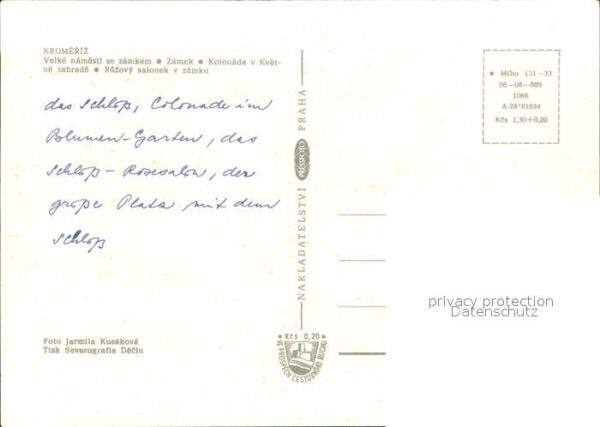 KROMĚŘÍŽ
Velké náměstí se zámkem ● Zámek ● Kolonáda v Květ-
né zahradě ● Růžový salonek v zámku
das Schloß, Colonade im
Blumen-Garten, das
Schloß-Rosesalon, der
große Platz mit dem
Schloß
Foto Jarmila Kusáková
Tisk Severografia Děčín
NAKLADATELSTVÍ PRESSFOTO PRAHA
● Kčs 0,20 ●
VE PROSPĚCH CESTOVNÍHO RUCHU
● MOm 131-33
08-08-889
1066
A-28*61634
Kčs 1,30+0,20
privacy protection
Datenschutz